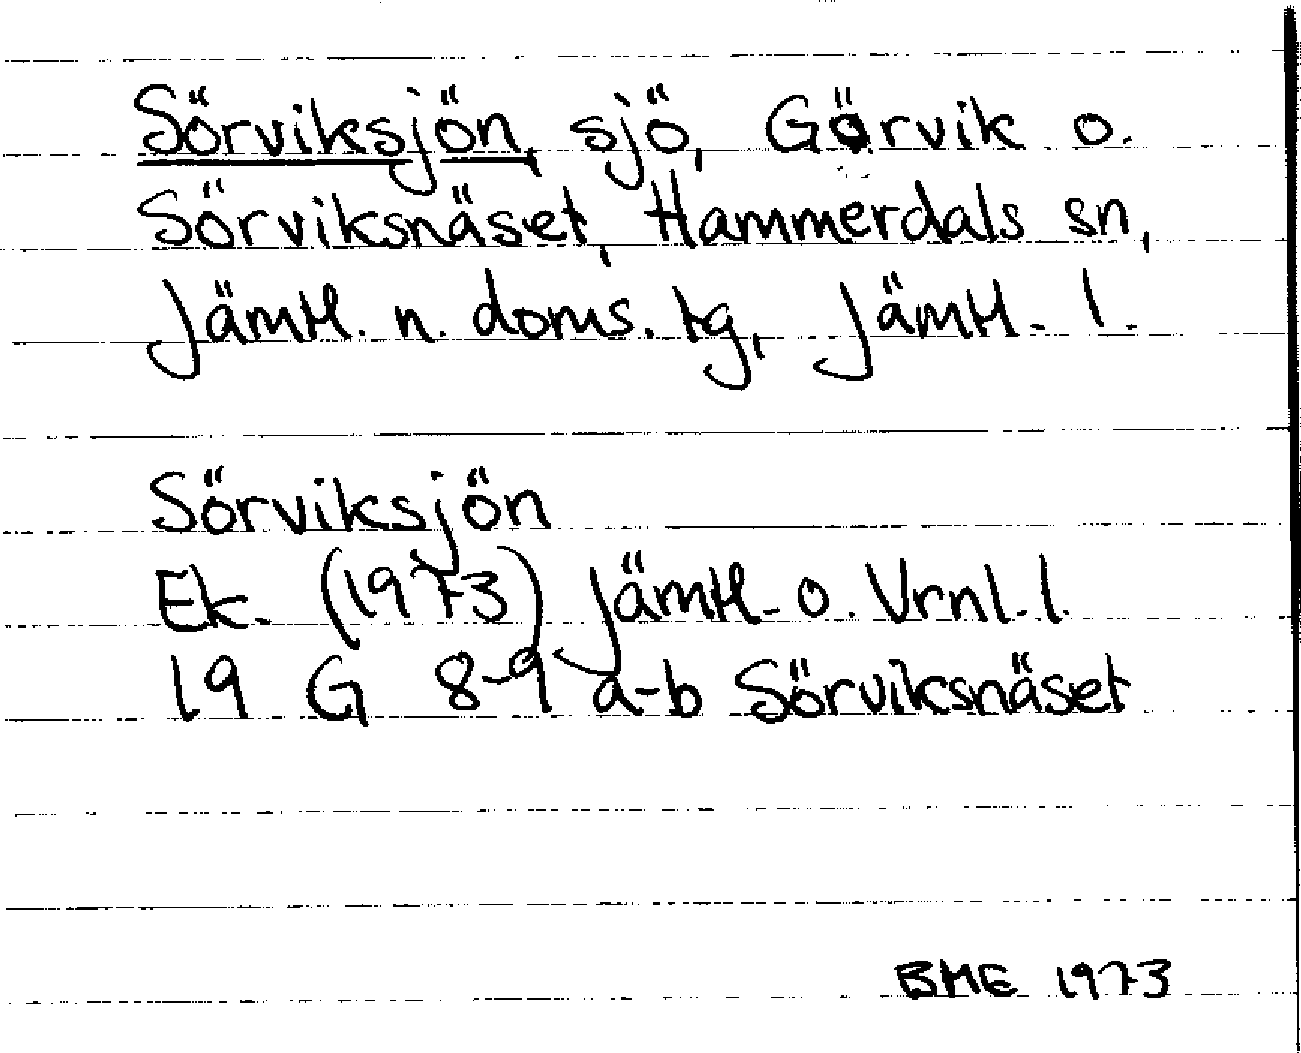 Sörviksjön, sjö, Görvik o.
Sörviksnäset, Hammerdals sn,
Jämtl. n. doms. tg, Jämtl. l.
Sörviksjön
Ek. (1973) Jämtl. o. Vrnl. l.
19 G 8-9 a-b Sörviksnäset
BME 1973